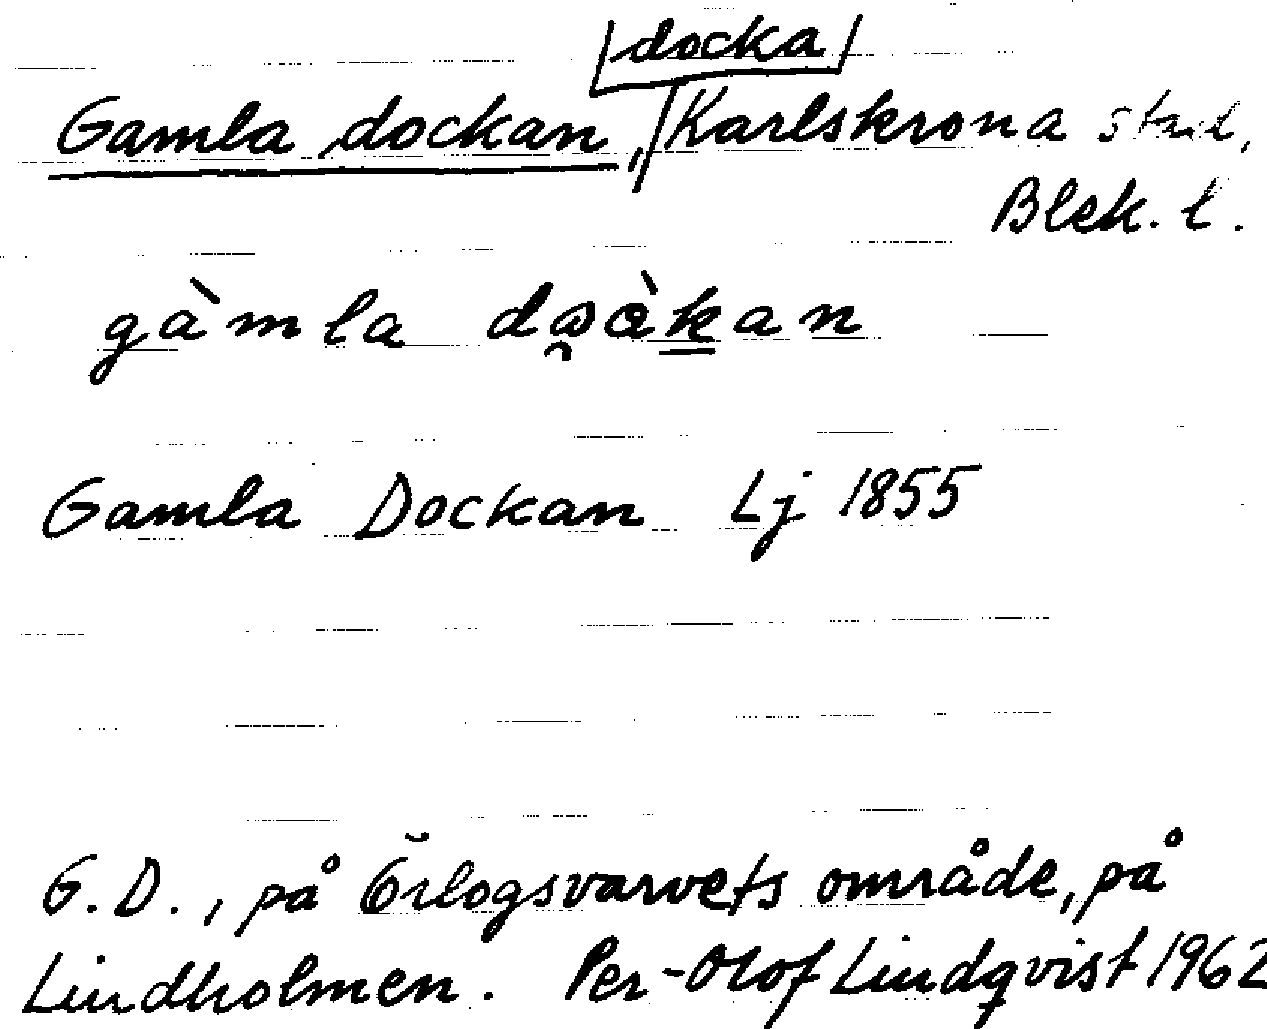 docka
Gamla dockan, Karlskrona stad,
Blek. l.
gàmla
Gamla Dockan Lj 1855
G.D., på Örlogsvarvets område, på
Lindholmen. Per-Olof Lindqvist 1962